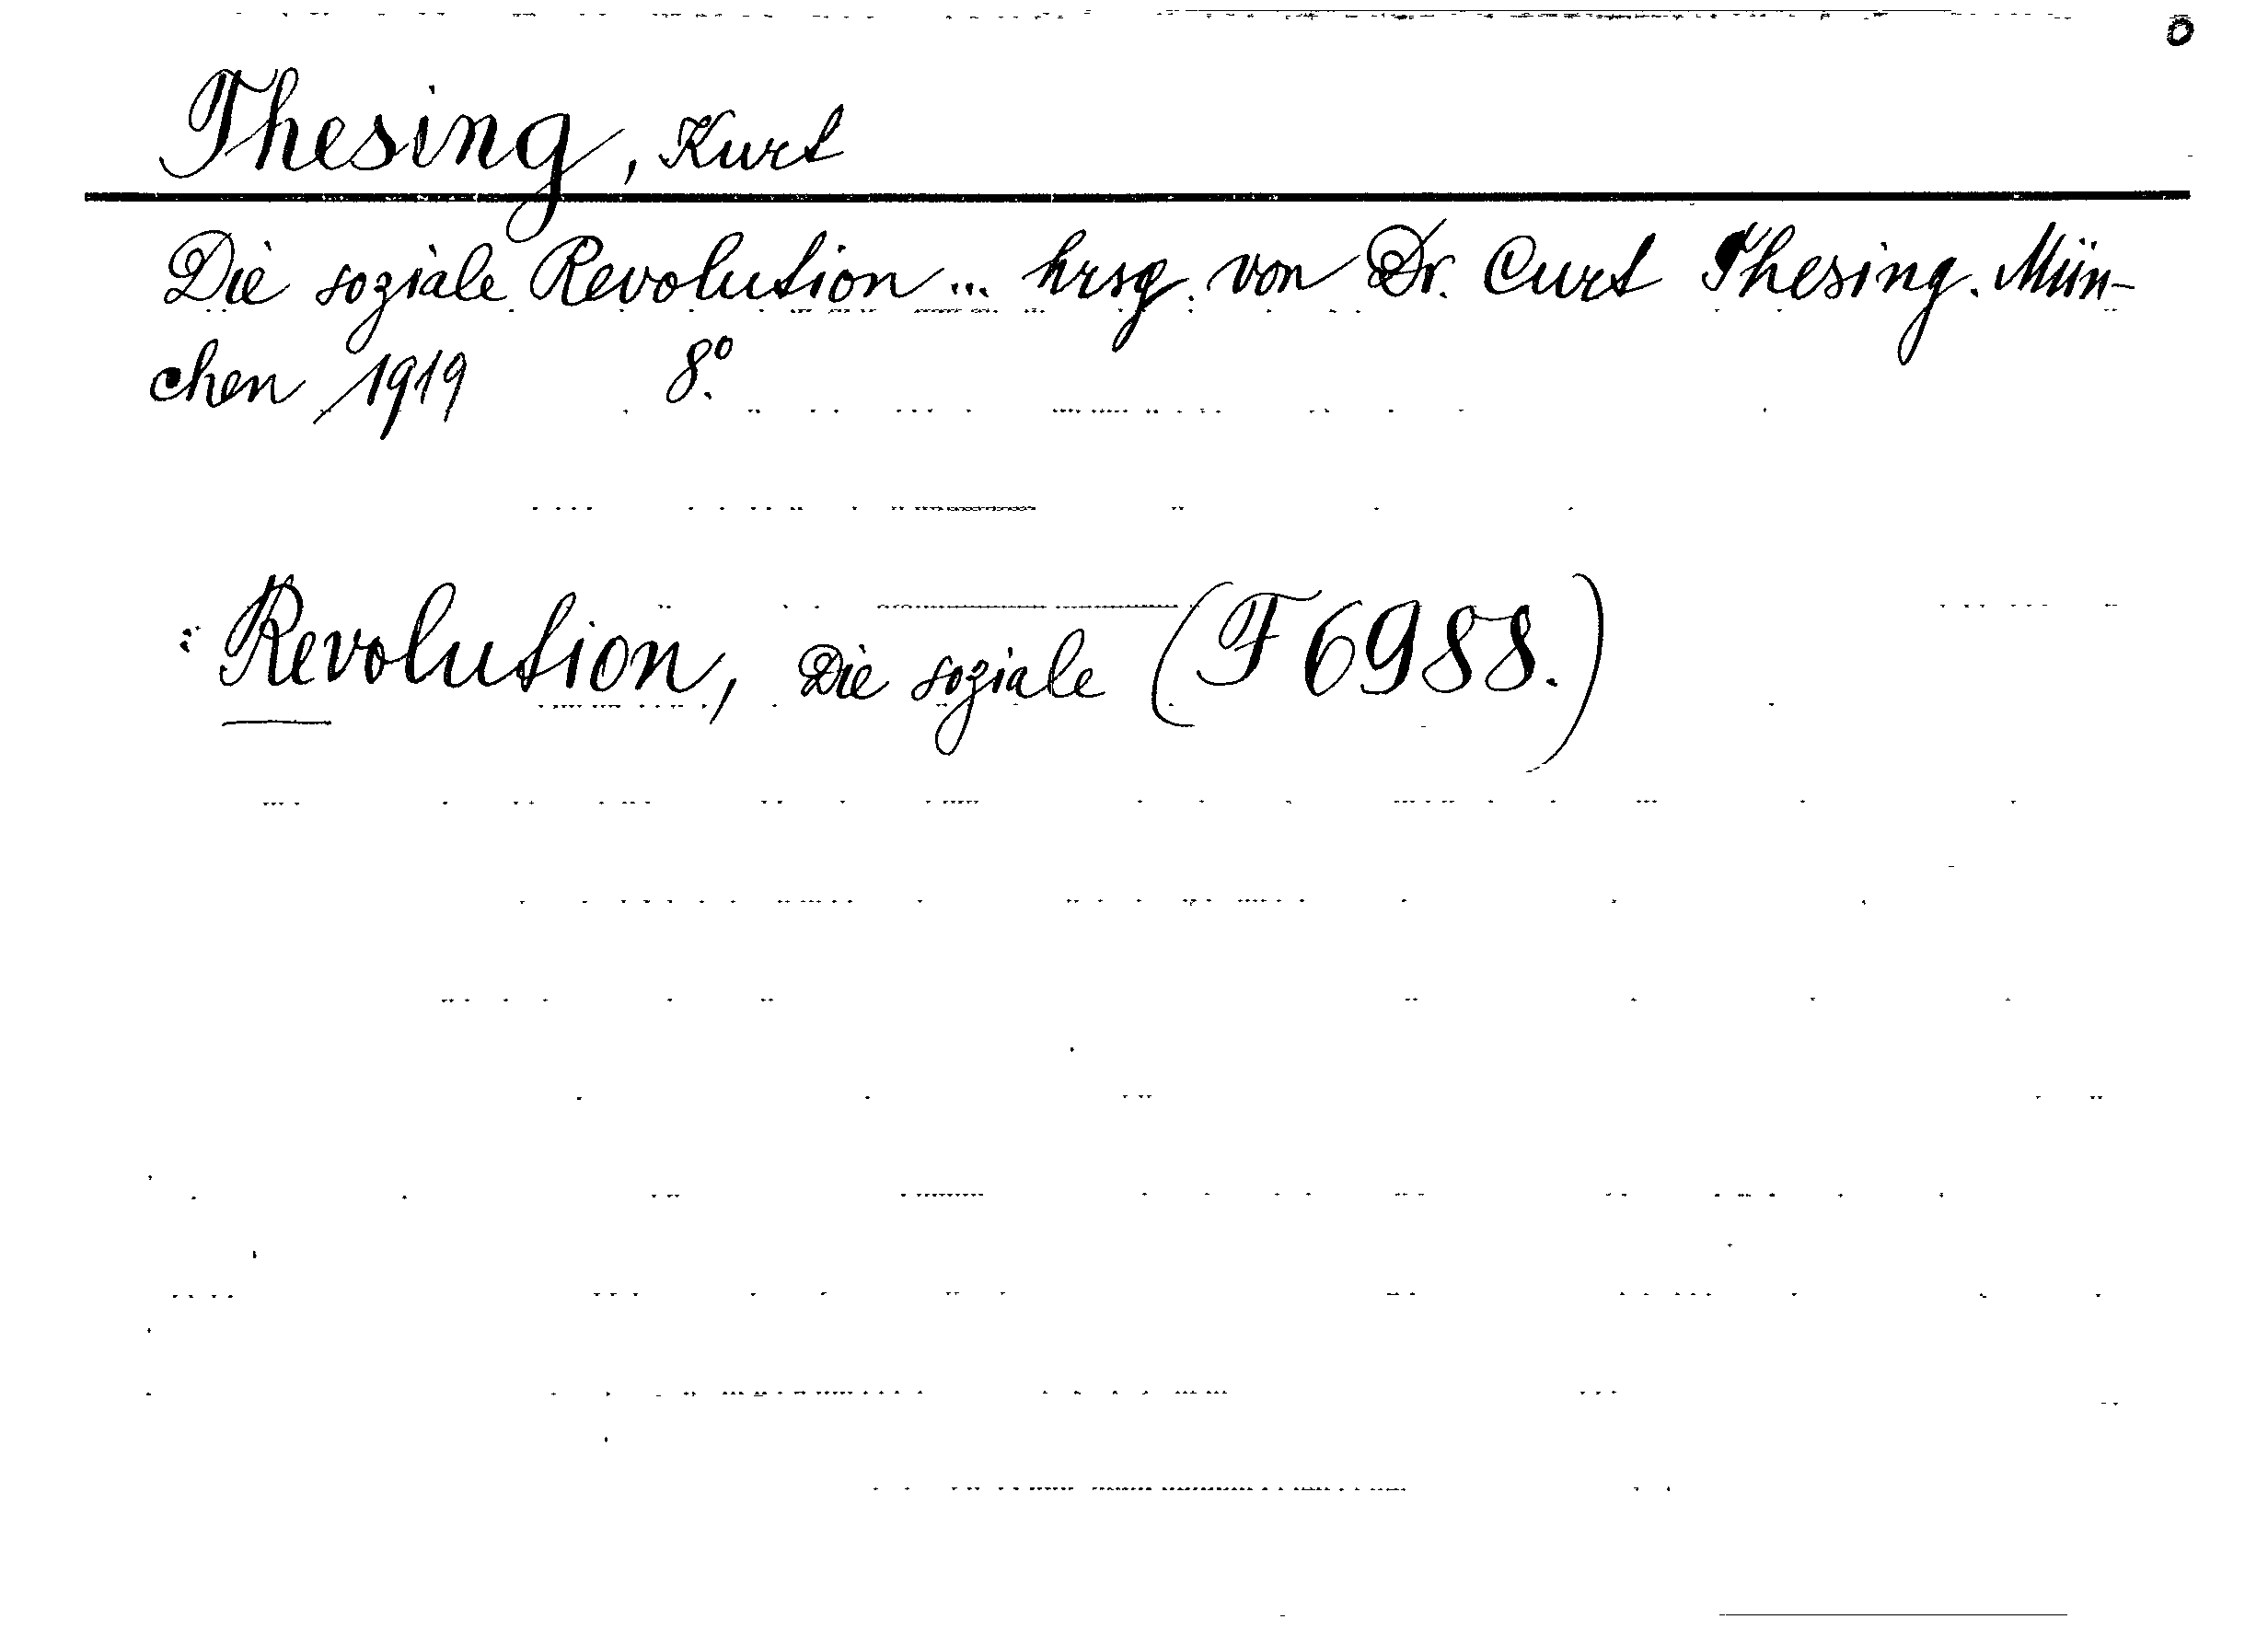 Thesing, Kurt
Die soziale Revolution ... hrsg. von Dr. Curt Thesing. Mün-
chen 1919 8°.
: Revolution, Die soziale (F 6988.)